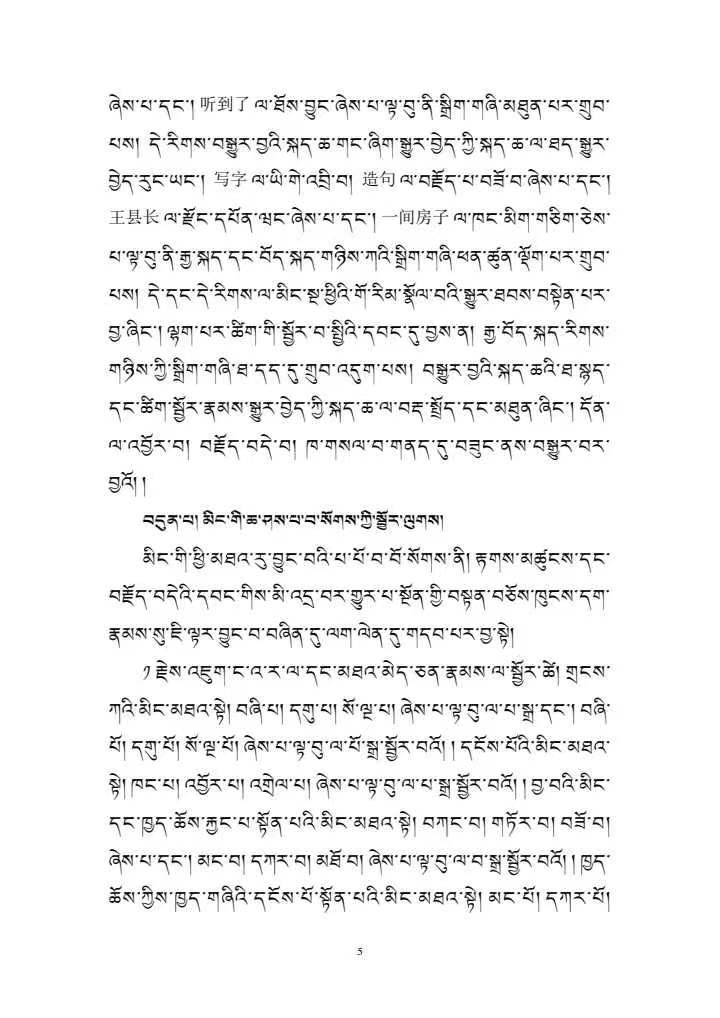 ཞེས་པ་དང་། 听到了 ལ་ཐོས་བྱུང་ཞེས་པ་ལྟ་བུ་ནི་སྒྲིག་གཞི་མཐུན་པར་གྲུབ་
པས། དེ་རིགས་བསྒྱུར་བྱའི་སྐད་ཆ་གང་ཞིག་སྒྱུར་བྱེད་ཀྱི་སྐད་ཆ་ལ་ཐད་སྒྱུར་
བྱེད་རུང་ཡང་། 写字 ལ་ཡི་གེ་འབྲི་བ། 造句 ལ་བརྗོད་པ་བཟོ་བ་ཞེས་པ་དང་།
王县长 ལ་རྫོང་དཔོན་ཝང་ཞེས་པ་དང་། 一间房子 ལ་ཁང་མིག་གཅིག་ཅེས་
པ་ལྟ་བུ་ནི་རྒྱ་སྐད་དང་བོད་སྐད་གཉིས་ཀའི་སྒྲིག་གཞི་ཕན་ཚུན་ལྡོག་པར་གྲུབ་
པས། དེ་དང་དེ་རིགས་ལ་མིང་སྔ་ཕྱིའི་གོ་རིམ་སྣོལ་བའི་སྒྱུར་ཐབས་བསྟེན་པར་
བྱ་ཞིང་། ལྷག་པར་ཚིག་གི་སྦྱོར་བ་སྤྱིའི་དབང་དུ་བྱས་ན། རྒྱ་བོད་སྐད་རིགས་
གཉིས་ཀྱི་སྒྲིག་གཞི་ཐ་དད་དུ་གྲུབ་འདུག་པས། བསྒྱུར་བྱའི་སྐད་ཆའི་ཐ་སྙད་
དང་ཚིག་སྦྱོར་རྣམས་སྒྱུར་བྱེད་ཀྱི་སྐད་ཆ་ལ་བརྡ་སྤྲོད་དང་མཐུན་ཞིང་། དོན་
ལ་འབྱོར་བ། བརྗོད་བདེ་བ། ཁ་གསལ་བ་གནད་དུ་བཟུང་ནས་བསྒྱུར་བར་
བྱའོ། །
བདུན་པ། མིང་གི་ཆ་ཤས་པ་བ་སོགས་ཀྱི་སྦྱོར་ལུགས།
མིང་གི་ཕྱི་མཐའ་རུ་བྱུང་བའི་པ་པོ་བ་བོ་སོགས་ནི། རྟགས་མཚུངས་དང་
བརྗོད་བདེའི་དབང་གིས་མི་འདྲ་བར་གྱུར་པ་སྔོན་གྱི་བསྟན་བཅོས་ཁུངས་དག་
རྣམས་སུ་ཇི་ལྟར་བྱུང་བ་བཞིན་དུ་ལག་ལེན་དུ་གདབ་པར་བྱ་སྟེ།
༡ རྗེས་འཇུག་ང་འ་ར་ལ་དང་མཐའ་མེད་ཅན་རྣམས་ལ་སྦྱོར་ཚེ། གྲངས་
ཀའི་མིང་མཐའ་སྟེ། བཞི་པ། དགུ་པ། སོ་ལྔ་པ། ཞེས་པ་ལྟ་བུ་ལ་པ་སྒྲ་དང་། བཞི་
པོ། དགུ་པོ། སོ་ལྔ་པོ། ཞེས་པ་ལྟ་བུ་ལ་པོ་སྒྲ་སྦྱོར་བའོ། ། དངོས་པོའི་མིང་མཐའ་
སྟེ། ཁང་པ། འབྱོར་པ། འགྲེལ་པ། ཞེས་པ་ལྟ་བུ་ལ་པ་སྒྲ་སྦྱོར་བའོ། ། བྱ་བའི་མིང་
དང་ཁྱད་ཆོས་རྐྱང་པ་སྟོན་པའི་མིང་མཐའ་སྟེ། བཀང་བ། གཏོར་བ། བཟོ་བ།
ཞེས་པ་དང་། མང་བ། དཀར་བ། མཐོ་བ། ཞེས་པ་ལྟ་བུ་ལ་བ་སྒྲ་སྦྱོར་བའོ། ། ཁྱད་
ཆོས་ཀྱིས་ཁྱད་གཞིའི་དངོས་པོ་སྟོན་པའི་མིང་མཐའ་སྟེ། མང་པོ། དཀར་པོ།
5